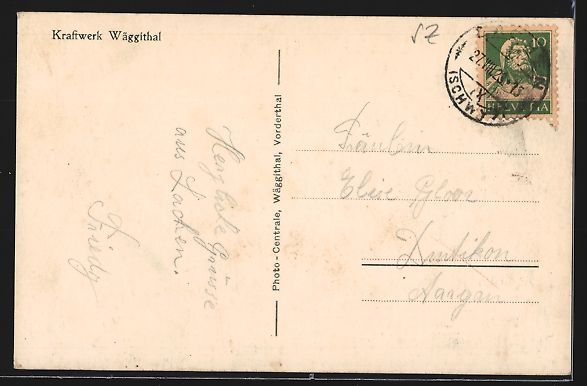 Kraftwerk Wäggithal
SZ
10
HELVETIA
(SCHWYZ)
Photo-Centrale, Wäggithal, Vorderthal
Herzliche Grüsse
aus Lachen.
Frieda
Fräulein
Elise Gloor
Dintikon
Aargau